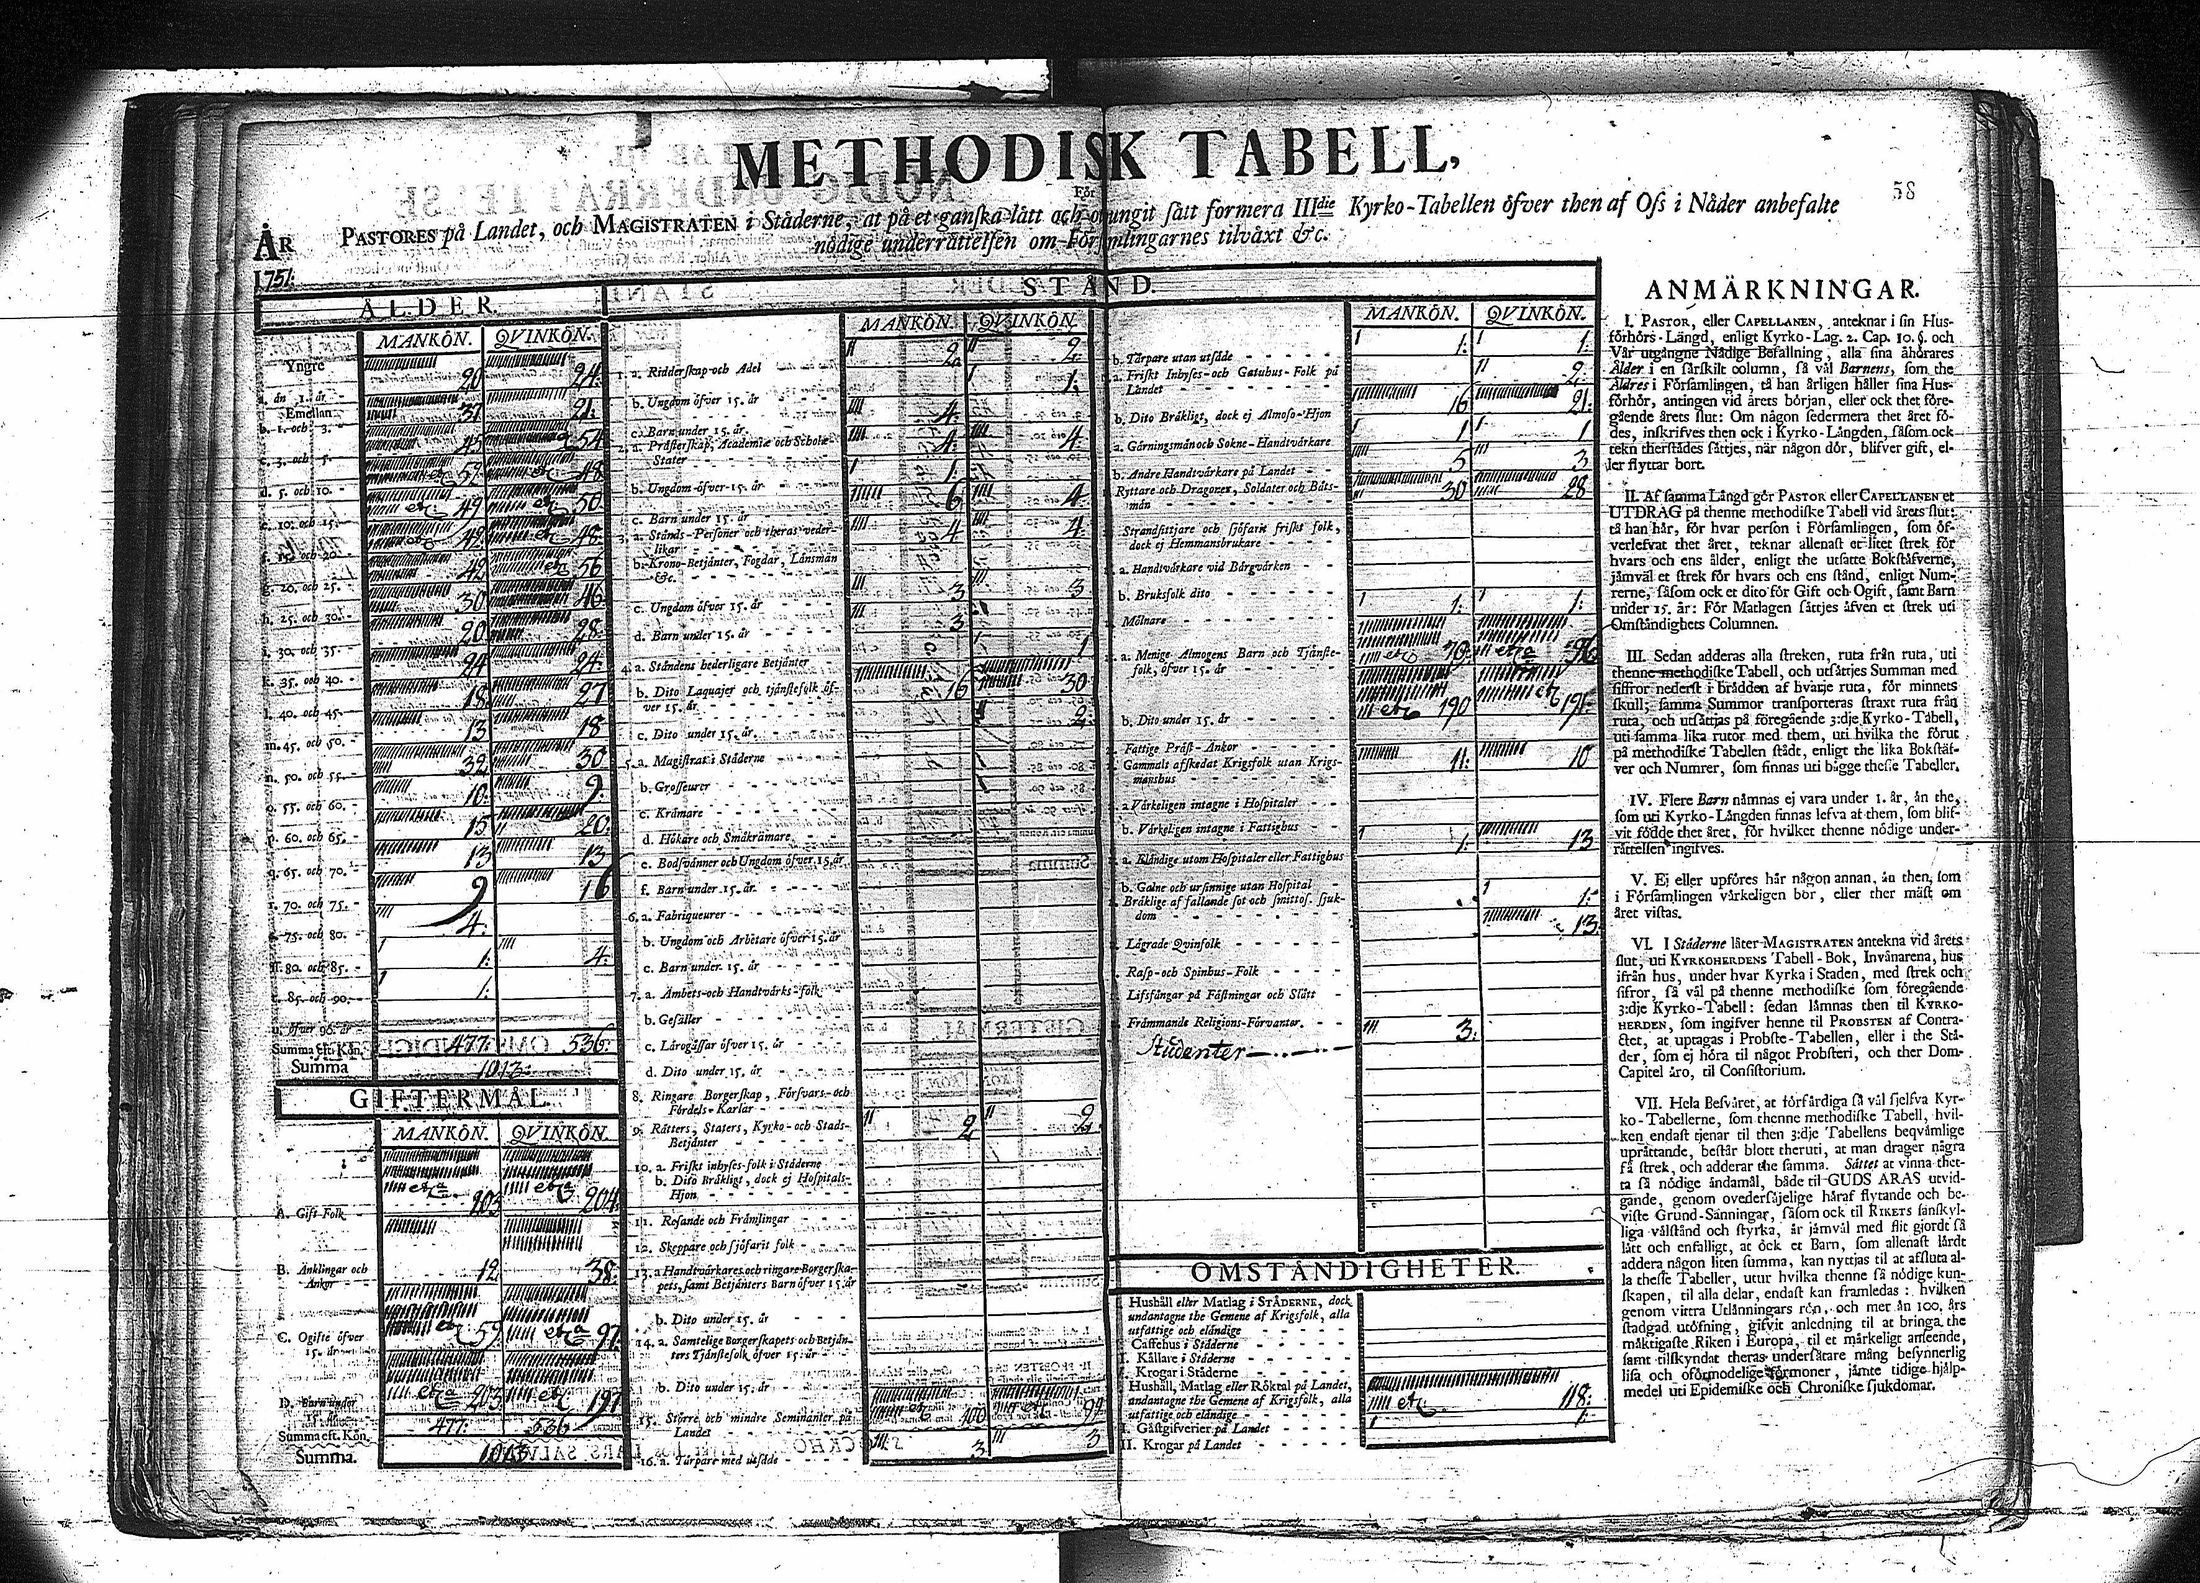 METHODISK TABELL,
58
För
PASTORES på Landet, och MAGISTRATEN i Städerne, at på et ganska lätt och otungit sätt formera IIIdie Kyrko-Tabellen öfver then af Oss i Nåder anbefalte
nödige underrättelsen om Församlingarnes tilväxt &c.
ÅR
1751.
ÅLDER.
MANKÖN. QVINKÖN.
Yngre 20 24.
a. än 1. år
Emellan 31. 21.
b. 1. och 3.
45 54
c. 3. och 5.
57 48
d. 5. och 10.
49 50
e. 10. och 15.
42 48
f. 15. och 20.
42 56
g. 20. och 25.
30 46
h. 25. och 30.
20 28
i. 30. och 35.
24 24
k. 35. och 40.
18 27
l. 40. och 45.
13 18
m. 45. och 50.
32 30
n. 50. och 55.
10. 9.
o. 55. och 60.
15 20.
p. 60. och 65.
13 13
q. 65. och 70.
9 16
r. 70. och 75.
4.
s. 75. och 80.
1. 4.
ſſ. 80. och 85.
1.
t. 85. och 90.
u. öfver 90. år
Summa eft. Kön. 477. 536.
Summa 1013.
GIFTERMÅL.
MANKÖN. QVINKÖN.
etca 203 etca 204.
A. Gift Folk
B. Änklingar och 12 38.
Änkor
C. Ogifte öfver etc 59. etca 97.
15. år
etca 203 etc 197
D. Barn under
15. år
Summa eft. Kön. 477. 536
Summa. 1013
STÅND.
MANKÖN. QVINKÖN.
2. 2.
1. a. Ridderskap och Adel
1.
b. Ungdom öfver 15. år
4.
c. Barn under 15. år
2. a. Prästerskap, Academiæ och Scholæ- 4. 4
Stater
1.
b. Ungdom öfver 15. år
6 4
c. Barn under 15. år
3. a. Stånds-Personer och theras veder- 4. 4.
likar
b. Krono-Betjänter, Fogdar, Länsmän
&c. 3 3
c. Ungdom öfver 15. år
3
d. Barn under 15. år
1
4. a. Ståndens hederligare Betjänter
b. Dito Laquajer och tjänstefolk öf- 16 30
ver 15. år
2.
c. Dito under 15. år
5. a. Magistrat i Städerne
b. Grosseurer
c. Krämare
d. Hökare och Småkrämare
e. Bodsvänner och Ungdom öfver 15. år
f. Barn under 15. år
6. a. Fabriqueurer
b. Ungdom och Arbetare öfver 15. år
c. Barn under 15. år
7. a. Ämbets- och Handtvärks-folk
b. Gesäller
c. Lärogåssar öfver 15. år
d. Dito under 15. år
8. Ringare Borgerskap, Försvars- och
Fördels-Karlar
2 2
9. Rätters, Staters, Kyrko- och Stads-
Betjänter
10. a. Friskt inhyses-folk i Städerne
b. Dito Bräkligt, dock ej Hospitals-
Hjon
11. Resande och Främlingar
12. Skeppare och sjöfarit folk
13. a. Handtvärkares och ringare Borgerska-
pets, samt Betjänters Barn öfver 15. år
b. Dito under 15. år
14. a. Samtelige Borgerskapets och Betjän-
ters Tjänstefolk öfver 15. år
b. Dito under 15. år
etc 100 etc 94
15. Större och mindre Hemmanter på
Landet
3 3
16. a. Torpare med utsäde
MANKÖN. QVINKÖN.
1. 1.
b. Torpare utan utsäde
a. Friskt Inhyses- och Gatuhus-Folk på 2.
Landet
16 21.
b. Dito Bräkligt, dock ej Almoso-Hjon
1 1
a. Gärningsmän och Sokne-Handtvärkare
5 3
b. Andre Handtvärkare på Landet
Ryttare och Dragoner, Soldater och Båts- 30 28
män
Strandsittjare och sjöfarit friskt folk,
dock ej Hemmansbrukare
a. Handtvärkare vid Bärgvärken
b. Bruksfolk dito
1. 1.
Mölnare
a. Menige Almogens Barn och Tjänste- etc 70. etca 96
folk, öfver 15. år
etc 190 etc 191.
b. Dito under 15. år
Fattige Präst-Änkor
Gammalt afskedat Krigsfolk utan Krigs- 11. 10
manshus
a. Värkeligen intagne i Hospitaler
b. Värkeligen intagne i Fattighus
1. 13
a. Eländige utom Hospitaler eller Fattighus
b. Galne och ursinnige utan Hospital
Bräklige af fallande sot och smittos. sjuk- 1.
dom
13.
Lägrade Qvinfolk
Rasp- och Spinhus-Folk
Lifsfångar på Fästningar och Slått
Främmande Religions-Förvanter.
3.
Studenter
OMSTÄNDIGHETER.
Hushåll eller Matlag i STÄDERNE, dock
undantagne the Gemene af Krigsfolk, alla
utfattige och eländige
Caffehus i Städerne
Källare i Städerne
Krogar i Städerne
Hushåll, Matlag eller Röktal på Landet,
undantagne the Gemene af Krigsfolk, alla etc. 118.
utfattige och eländige
I. Gästgifverier på Landet 1.
II. Krogar på Landet
ANMÄRKNINGAR.
I. PASTOR, eller CAPELLANEN, anteknar i sin Hus-
förhörs-Längd, enligt Kyrko-Lag. 2. Cap. 10. §. och
Vår utgångne Nådige Befallning, alla sina åhörares
Ålder i en särskilt column, så väl Barnens, som the
Äldres i Församlingen, tå han årligen håller sina Hus-
förhör, antingen vid årets början, eller ock thet före-
gående årets slut: Om någon sedermera thet året fö-
des, inskrifves then ock i Kyrko-Längden, såsom ock
tekn therstädes sättjes, när någon dör, blifver gift, el-
ler flyttar bort.
II. Af samma Längd gör PASTOR eller CAPELLANEN et
UTDRAG på thenne methodiske Tabell vid årets slut:
tå han här, för hvar person i Församlingen, som öf-
verlefvat thet året, teknar allenast et litet strek för
hvars och ens ålder, enligt the utsatte Bokstäfverne,
jämväl et strek för hvars och ens stånd, enligt Num-
rerne, såsom ock et dito för Gift och Ogift, samt Barn
under 15. år: För Matlagen sättjes äfven et strek uti
Omständighets Columnen.
III. Sedan adderas alla streken, ruta från ruta, uti
thenne methodiske Tabell, och utsättjes Summan med
siffror nederst i brädden af hvarje ruta, för minnets
skull; samma Summor transporteras straxt ruta från
ruta, och utsättjas på föregående 3:dje Kyrko-Tabell,
uti samma lika rutor med them, uti hvilka the förut
på methodiske Tabellen stådt, enligt the lika Bokstäf-
ver och Numrer, som finnas uti bägge thesse Tabeller.
IV. Flere Barn nämnas ej vara under 1. år, än the,
som uti Kyrko-Längden finnas lefva at them, som blif-
vit födde thet året, för hvilket thenne nödige under-
rättelsen ingifves.
V. Ej eller upföres här någon annan, än then, som
i Församlingen värkeligen bor, eller ther mäst om
året vistas.
VI. I Städerne låter MAGISTRATEN antekna vid årets
slut, uti KYRKOHERDENS Tabell-Bok, Invånarena, hus
ifrån hus, under hvar Kyrka i Staden, med strek och
sifror, så väl på thenne methodiske som föregående
3:dje Kyrko-Tabell: sedan lämnas then til KYRKO-
HERDEN, som ingifver henne til PROBSTEN af Contra-
ctet, at uptagas i Probste-Tabellen, eller i the Stä-
der, som ej höra til något Probsteri, och ther Dom-
Capitel äro, til Consistorium.
VII. Hela Besväret, at förfärdiga så väl sjelfva Kyr-
ko-Tabellerne, som thenne methodiske Tabell, hvil-
ken endast tjenar til then 3:dje Tabellens beqvämlige
uprättande, består blott theruti, at man drager några
få strek, och adderar the samma. Sättet at vinna thet-
ta så nödige ändamål, både til GUDS ÄRAS utvid-
gande, genom ovedersäjelige häraf flytande och be-
viste Grund-Sanningar, såsom ock til RIKETS sanskyl-
liga välstånd och styrka, är jämväl med flit gjordt så
lätt och enfalligt, at ock et Barn, som allenast lärdt
addera någon liten summa, kan nyttjas til at afsluta al-
la thesse Tabeller, utur hvilka thenne så nödige kun-
skapen, til alla delar, endast kan framledas: hvilken
genom vittra Utlänningars rön, och mer än 100. års
stadgad utöfning, gifvit anledning til at bringa the
mäktigaste Riken i Europa, til et märkeligt anseende,
samt tilskyndat theras undersåtare mång besynnerlig
lisa och oförmodelige förmoner, jämte tidige hjälp-
medel uti Epidemiske och Chroniske sjukdomar.